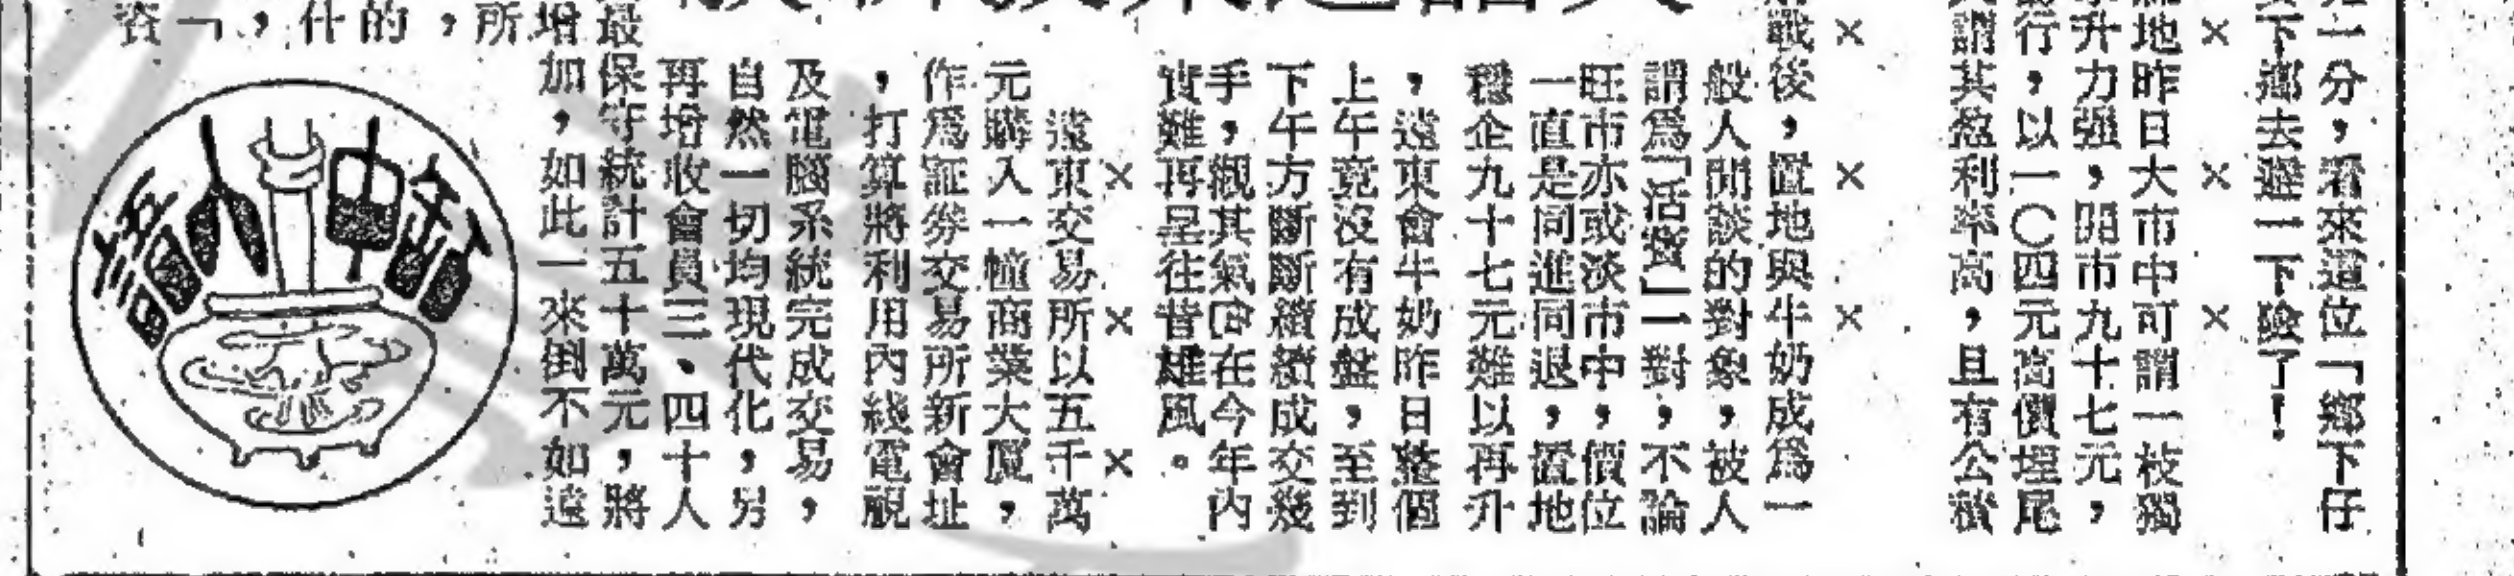 一分，看來這位「鄉下仔
下鄉去避一下險了！
地昨日大市中可謂一枝獨
升力强，開市九十七元，
行，以一〇四元高價埋尾
謂其盈利率高，且有公積
戰後，置地與牛奶成爲一
般人閒談的對象，被人
謂爲「活寶」一對，不論
旺市亦或淡市中，價位
一直是同進同退，置地
穩企九十七元難以再升
，遠東會牛奶昨日整個
上午竟沒有成盤，至到
下午方斷斷續續成交幾
手，觀其氣在今年內
實難再呈往昔雄風。
遠東交易所以五千萬
元購入一幢商業大厦，
作爲証券交易所新會址
，打算將利用內綫電視
及電腦系統完成交易，
自然一切均現代化，另
再增收會員三、四十人
最保守統計五十萬元，將
增加，如此一來倒不如遠
，所
的
，什
「
資